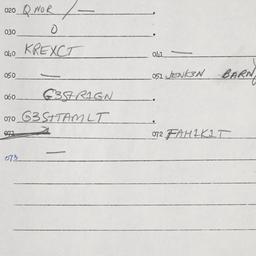 020 QNOR / —
030 O
040 KREXCT 041 —
050 — 051 JENKSN BARN
060 G3STR1GN
070 G3STTAMLT
071 072 FAH1K1T
073 —